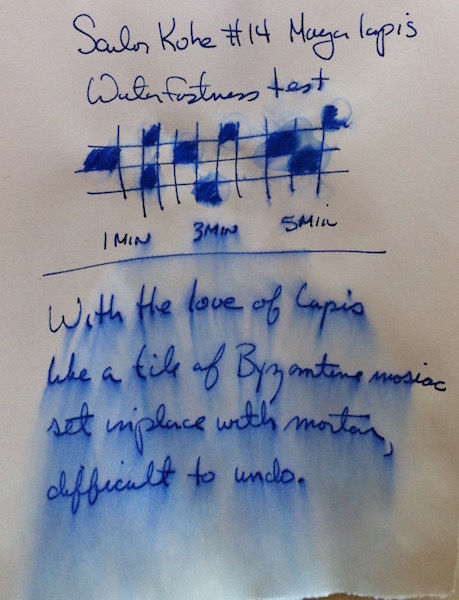 Sailor Kobe #14 Maya lapis
Waterfastness test
1 MIN 3 MIN 5 MIN
With the love of lapis
like a tile of Byzantine mosiac
set inplace with mortar,
difficult to undo.